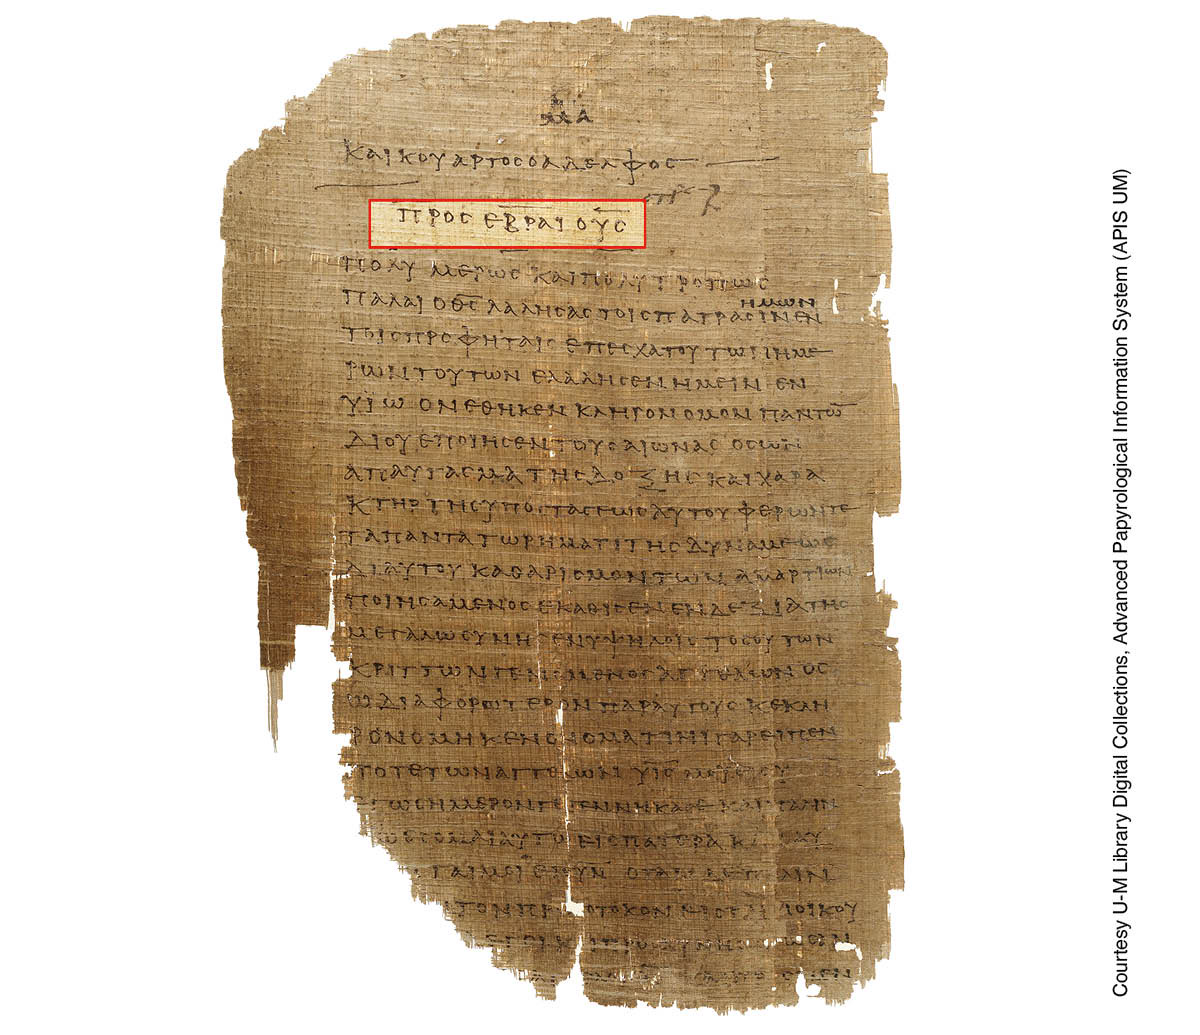 ΚΑΙ ΚΟΥΑΡΤΟϹ Ο ΑΔΕΛΦΟϹ
ΠΡΟϹ ΕΒΡΑΙΟΥϹ
ΠΟΛΥΜΕΡΩϹ ΚΑΙ ΠΟΛΥΤΡΟΠΩϹ
ΗΜΩΝ
ΠΑΛΑΙ Ο Θ̅Ϲ̅ ΛΑΛΗϹΑϹ ΤΟΙϹ ΠΑΤΡΑϹΙΝ ΕΝ
ΤΟΙϹ ΠΡΟΦΗΤΑΙϹ ΕΠ ΕϹΧΑΤΟΥ ΤΩΝ ΗΜΕ
ΡΩΝ ΤΟΥΤΩΝ ΕΛΑΛΗϹΕΝ ΗΜΕΙΝ ΕΝ
ΥΙΩ ΟΝ ΕΘΗΚΕΝ ΚΛΗΡΟΝΟΜΟΝ ΠΑΝΤΩ̅
ΔΙ ΟΥ ΕΠΟΙΗϹΕΝ ΤΟΥϹ ΑΙΩΝΑϹ ΟϹ ΩΝ
ΑΠΑΥΓΑϹΜΑ ΤΗϹ ΔΟΞΗϹ ΚΑΙ ΧΑΡΑ
ΚΤΗΡ ΤΗϹ ΥΠΟϹΤΑϹΕΩϹ ΑΥΤΟΥ ΦΕΡΩΝ ΤΕ
ΤΑ ΠΑΝΤΑ ΤΩ ΡΗΜΑΤΙ ΤΗϹ ΔΥΝΑΜΕΩϹ
ΔΙ ΑΥΤΟΥ ΚΑΘΑΡΙϹΜΟΝ ΤΩΝ ΑΜΑΡΤΙΩΝ
ΠΟΙΗϹΑΜΕΝΟϹ ΕΚΑΘΙϹΕΝ ΕΝ ΔΕΞΙΑ ΤΗϹ
ΜΕΓΑΛΩϹΥΝΗϹ ΕΝ ΥΨΗΛΟΙϹ ΤΟϹΟΥΤΩΝ
ΚΡΙΤΤΩΝ ΓΕΝΟΜΕΝΟϹ ΑΓΓΕΛΩΝ ΟϹ
Ω ΔΙΑΦΟΡΩΤΕΡΟΝ ΠΑΡ ΑΥΤΟΥϹ ΚΕΚΛΗ
ΡΟΝΟΜΗΚΕΝ ΟΝΟΜΑ ΤΙΝΙ ΓΑΡ ΕΙΠΕΝ
ΠΟΤΕ ΤΩΝ ΑΓΓΕΛΩΝ Υ̅Ι̅Ϲ̅ ΜΟΥ ΕΙ ϹΥ
ΕΓΩ ϹΗΜΕΡΟΝ ΓΕΓΕΝΝΗΚΑ ϹΕ ΚΑΙ ΠΑΛΙΝ
ΑΥΤΩ ΕΙϹ ΠΑΤΕΡΑ ΚΑΙ ΑΥ
ΟΤΑΝ ΔΕ ΠΑΛΙΝ
ΟΙΚΟΥ
Courtesy U-M Library Digital Collections, Advanced Papyrological Information System (APIS UM)